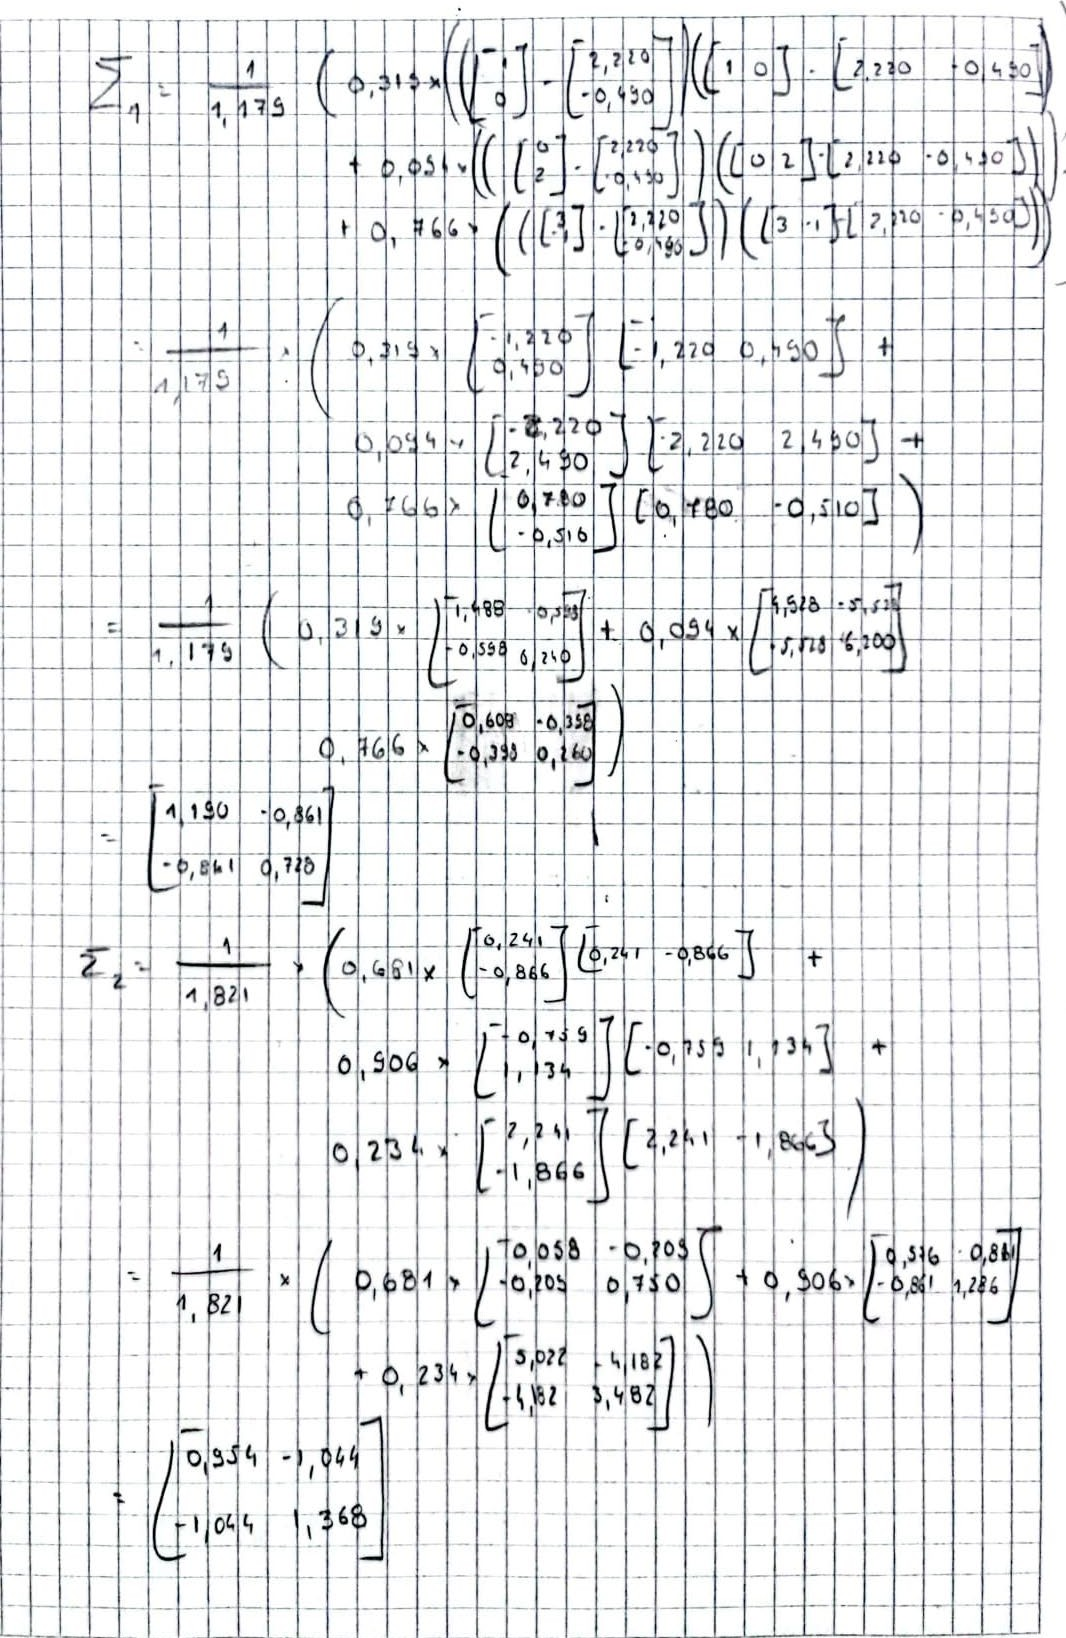 Σ₁ = 1/1,179 ( 0,319 × (([1 0] - [2,220 -0,490]) ([1 0] - [2,220 -0,490])
+ 0,094 × (([0 2] - [2,220 -0,490])) ([0 2] - [2,220 -0,490]))
+ 0,766 × (([3 -1] - [2,220 -0,490])) ([3 -1] - [2,220 -0,490]))
= 1/1,179 × ( 0,319 × [-1,220 0,490] [-1,220 0,490] +
0,094 × [-2,220 2,490] [-2,220 2,490] +
0,766 × [0,780 -0,510] [0,780 -0,510] )
= 1/1,179 ( 0,319 × [1,488 -0,598 -0,598 0,240] + 0,094 × [4,928 -5,528 -5,528 6,200]
0,766 × [0,608 -0,398 -0,398 0,260] )
= [1,190 -0,861 -0,861 0,729]
Σ₂ = 1/1,821 × ( 0,681 × [0,241 -0,866] [0,241 -0,866] +
0,906 × [-0,759 1,134] [-0,759 1,134] +
0,234 × [2,241 -1,866] [2,241 -1,866] )
= 1/1,821 × ( 0,681 × [0,058 -0,209 -0,209 0,750] + 0,906 × [0,576 -0,861 -0,861 1,286]
+ 0,234 × [5,022 -4,182 -4,182 3,482] )
= [0,954 -1,044 -1,044 1,368]